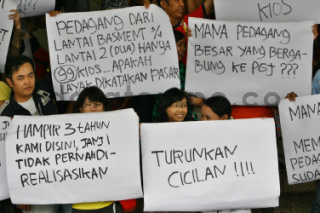 KIOS
PEDAGANG DARI
LANTAI BASMENT S/
LANTAI 2 (DUA) HANYA
99 KIOS... APAKAH
LAYAK DIKATAKAN PASAR
MANA PEDAGANG
BESAR YANG BERGA-
BUNG KE PGJ ???
HAMPIR 3 TAHUN
KAMI DISINI, JANJI
TIDAK PERNAH DI-
REALISASIKAN
TURUNKAN
CICILAN !!!!
MANA
PED
SUD